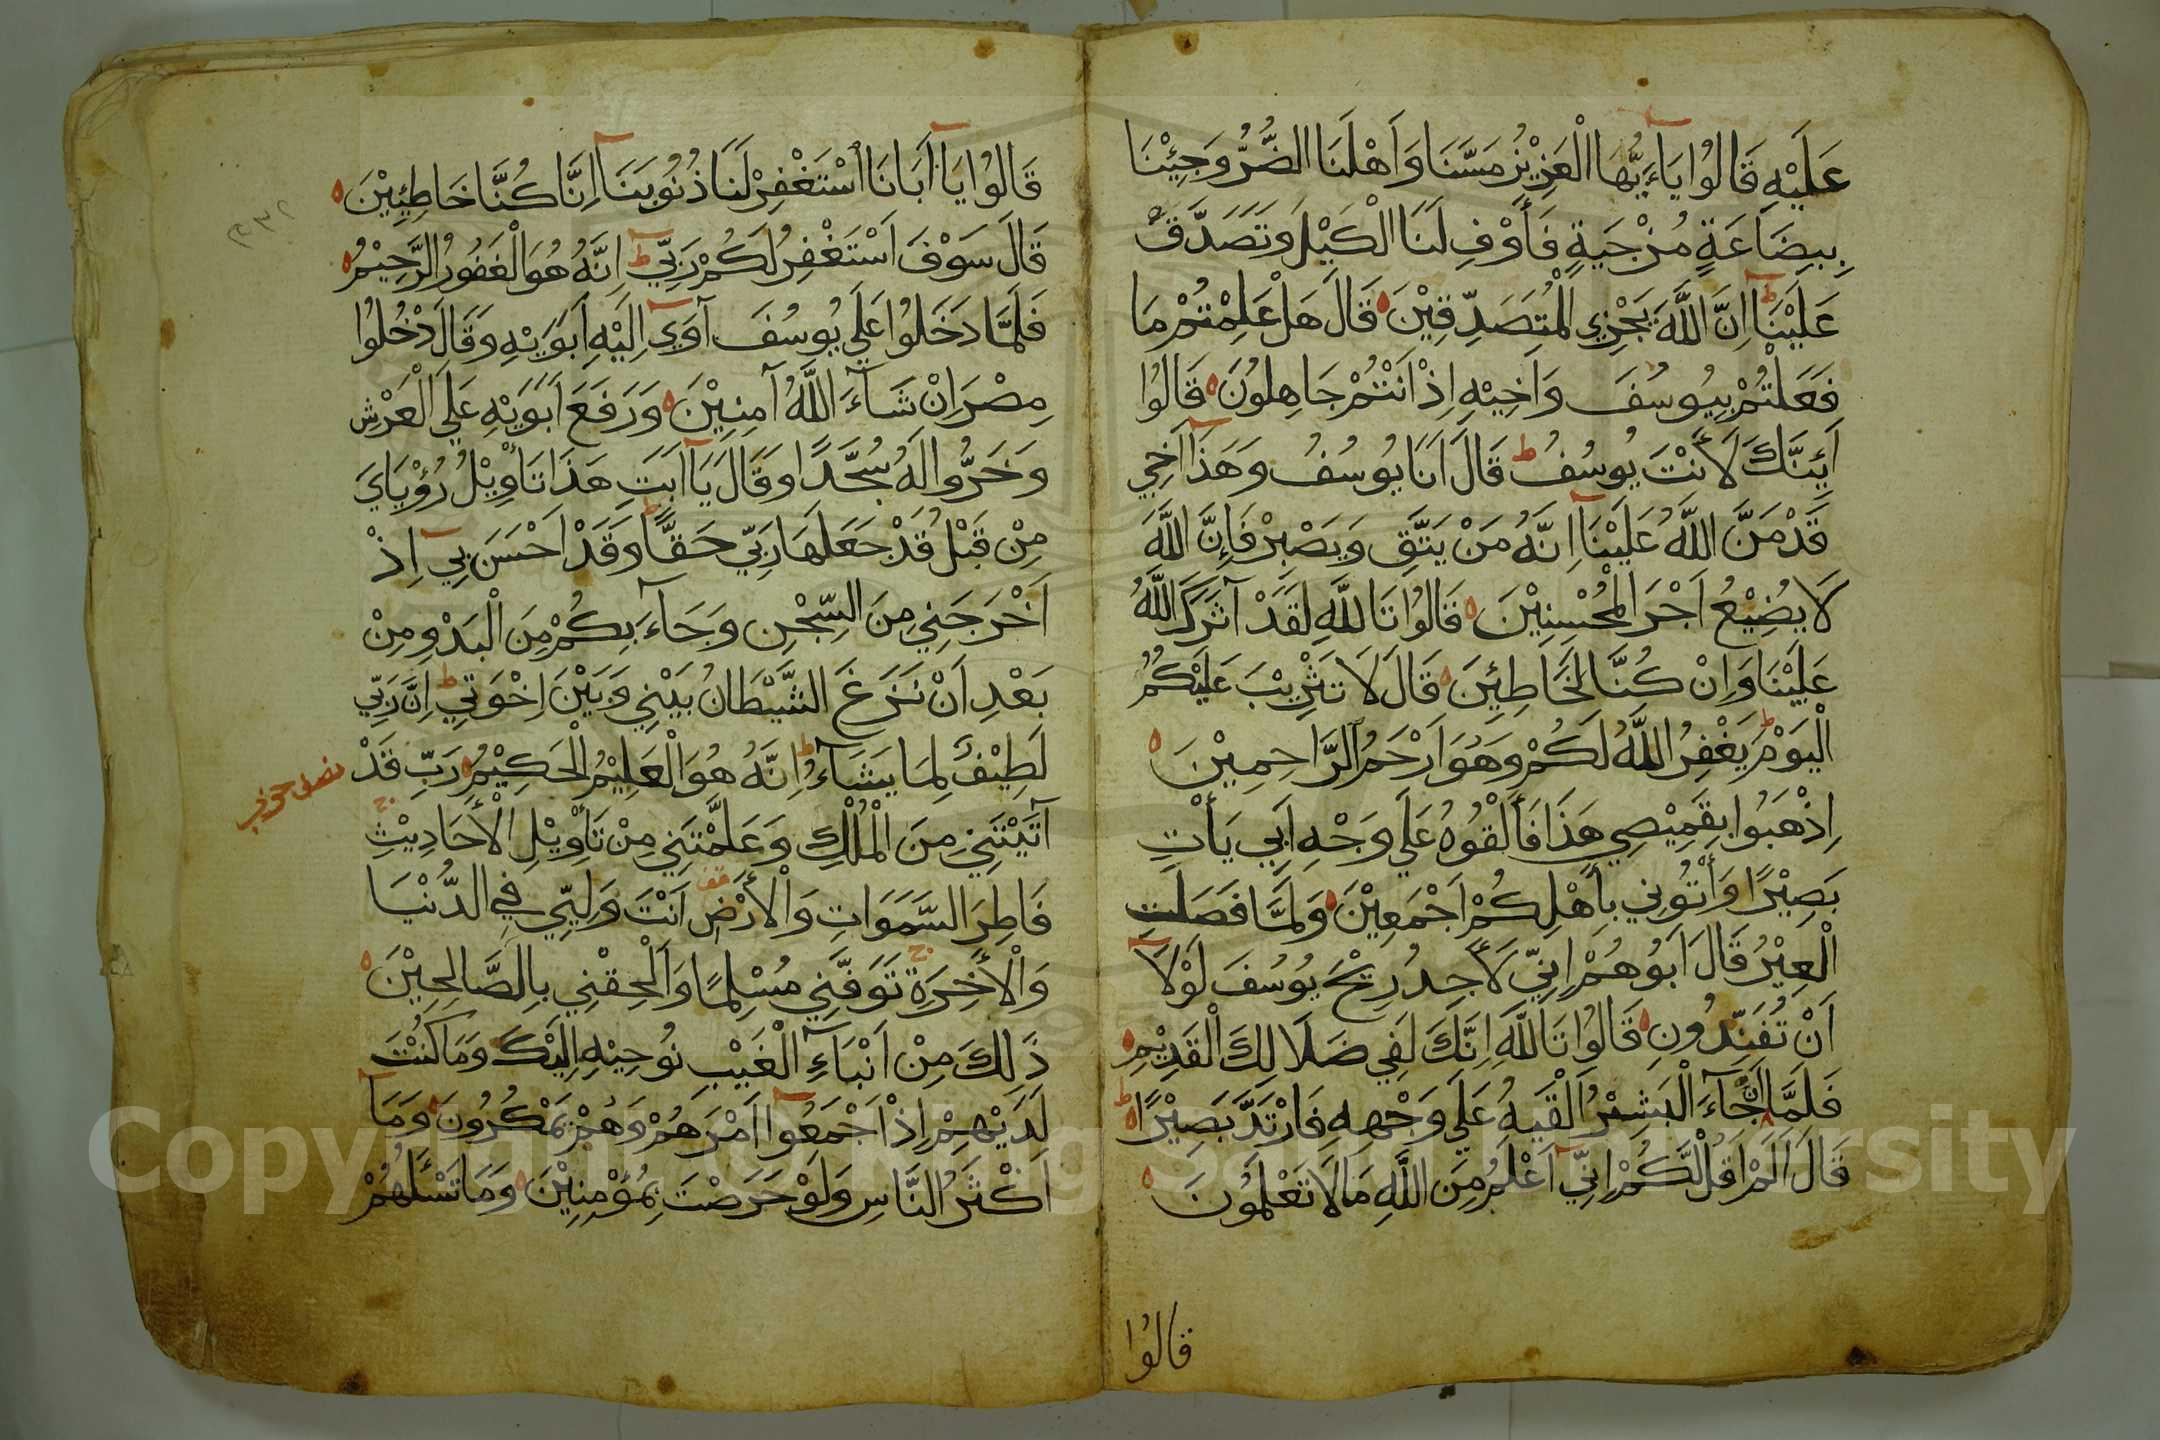 عَلَيْهِ قَالُوا يَاءَيُّهَا الْعَزِيْزُ مَسَّنَا وَاَهْلَنَا الضُّرُّ وَجِئْنَا
بِبِضَاعَةٍ مُزْجَيةٍ فَأَوْفِ لَنَا الْكَيْلَ وَتَصَدَّقْ
عَلَيْنَا اِنَّ اللَّهَ يَجْزِي الْمُتَصَدِّقِيْنَ قَالَ هَلْ عَلِمْتُمْ مَا
فَعَلْتُمْ بِيُوسُفَ وَاَخِيْهِ اِذْ اَنْتُمْ جَاهِلُونَ قَالُوا
اَئِنَّكَ لَأَنْتَ يُوسُفُ قَالَ اَنَا يُوسُفُ وَهَذَا اَخِي
قَدْ مَنَّ اللَّهُ عَلَيْنَا اِنَّهُ مَنْ يَتَّقِ وَيَصْبِرْ فَإِنَّ اللَّهَ
لَا يُضِيْعُ اَجْرَ الْمُحْسِنِيْنَ قَالُوا تَاللَّهِ لَقَدْ آثَرَكَ اللَّهُ
عَلَيْنَا وَاِنْ كُنَّا لَخَاطِئِينَ قَالَ لَا تَثْرِيْبَ عَلَيْكُمُ
الْيَوْمَ يَغْفِرُ اللَّهُ لَكُمْ وَهُوَ اَرْحَمُ الرَّاحِمِيْنَ
اِذْهَبُوا بِقَمِيْصِي هَذَا فَأَلْقُوهُ عَلَي وَجْهِ اَبِي يَأْتِ
بَصِيْرًا وَأْتُونِي بِأَهْلِكُمْ اَجْمَعِيْنَ وَلَمَّا فَصَلَتِ
الْعِيْرُ قَالَ اَبُوهُمْ اِنِّي لَأَجِدُ رِيْحَ يُوسُفَ لَوْلَا
اَنْ تُفَنِّدُونِ قَالُوا تَاللَّهِ اِنَّكَ لَفِي ضَلَالِكَ الْقَدِيْمِ
فَلَمَّا اَنْ جَاءَ الْبَشِيْرُ اَلْقَيهُ عَلَي وَجْهِهِ فَارْتَدَّ بَصِيْرًا
قَالَ اَلَمْ اَقُلْ لَّكُمْ اِنِّي اَعْلَمُ مِنَ اللَّهِ مَا لَا تَعْلَمُونَ
قالُوا
قَالُوا يَا اَبَانَا اسْتَغْفِرْ لَنَا ذُنُوبَنَا اِنَّا كُنَّا خَاطِئِيْنَ
قَالَ سَوْفَ اَسْتَغْفِرُ لَكُمْ رَبِّي اِنَّهُ هُوَ الْغَفُورُ الرَّحِيْمُ
فَلَمَّا دَخَلُوا عَلَي يُوسُفَ آوَي اِلَيْهِ اَبَوَيْهِ وَقَالَ دْخُلُوا
مِصْرَ اِنْ شَاءَ اللَّهُ آمِنِيْنَ وَرَفَعَ اَبَوَيْهِ عَلَي الْعَرْشِ
وَخَرُّوا لَهُ سُجَّدًا وَقَالَ يَا اَبَتِ هَذَا تَأْوِيْلُ رُؤْيَايَ
مِنْ قَبْلُ قَدْ جَعَلَهَا رَبِّي حَقًّا وَقَدْ اَحْسَنَ بِي اِذْ
اَخْرَجَنِي مِنَ السِّجْنِ وَجَاءَ بِكُمْ مِنَ الْبَدْوِ مِنْ
بَعْدِ اَنْ نَزَغَ الشَّيْطَانُ بَيْنِي وَبَيْنَ اِخْوَتِي اِنَّ رَبِّي
لَطِيْفٌ لِمَا يَشَاءُ اِنَّهُ هُوَ الْعَلِيْمُ الْحَكِيْمُ رَبِّ قَدْ
آتَيْتَنِي مِنَ الْمُلْكِ وَعَلَّمْتَنِي مِنْ تَأْوِيْلِ الْأَحَادِيْثِ
فَاطِرَ السَّمَوَاتِ وَالْأَرْضِ اَنْتَ وَلِيِّي فِي الدُّنْيَا
وَالْأَخِرَةِ تَوَفَّنِي مُسْلِمًا وَاَلْحِقْنِي بِالصَّالِحِيْنَ
ذَلِكَ مِنْ اَنْبَاءِ الْغَيْبِ نُوحِيْهِ اِلَيْكَ وَمَا كُنْتَ
لَدَيْهِمْ اِذْ اَجْمَعُوا اَمْرَهُمْ وَهُمْ يَمْكُرُونَ وَمَا
اَكْثَرُ النَّاسِ وَلَوْ حَرَصْتَ بِمُؤْمِنِيْنَ وَمَا تَسْئَلُهُمْ